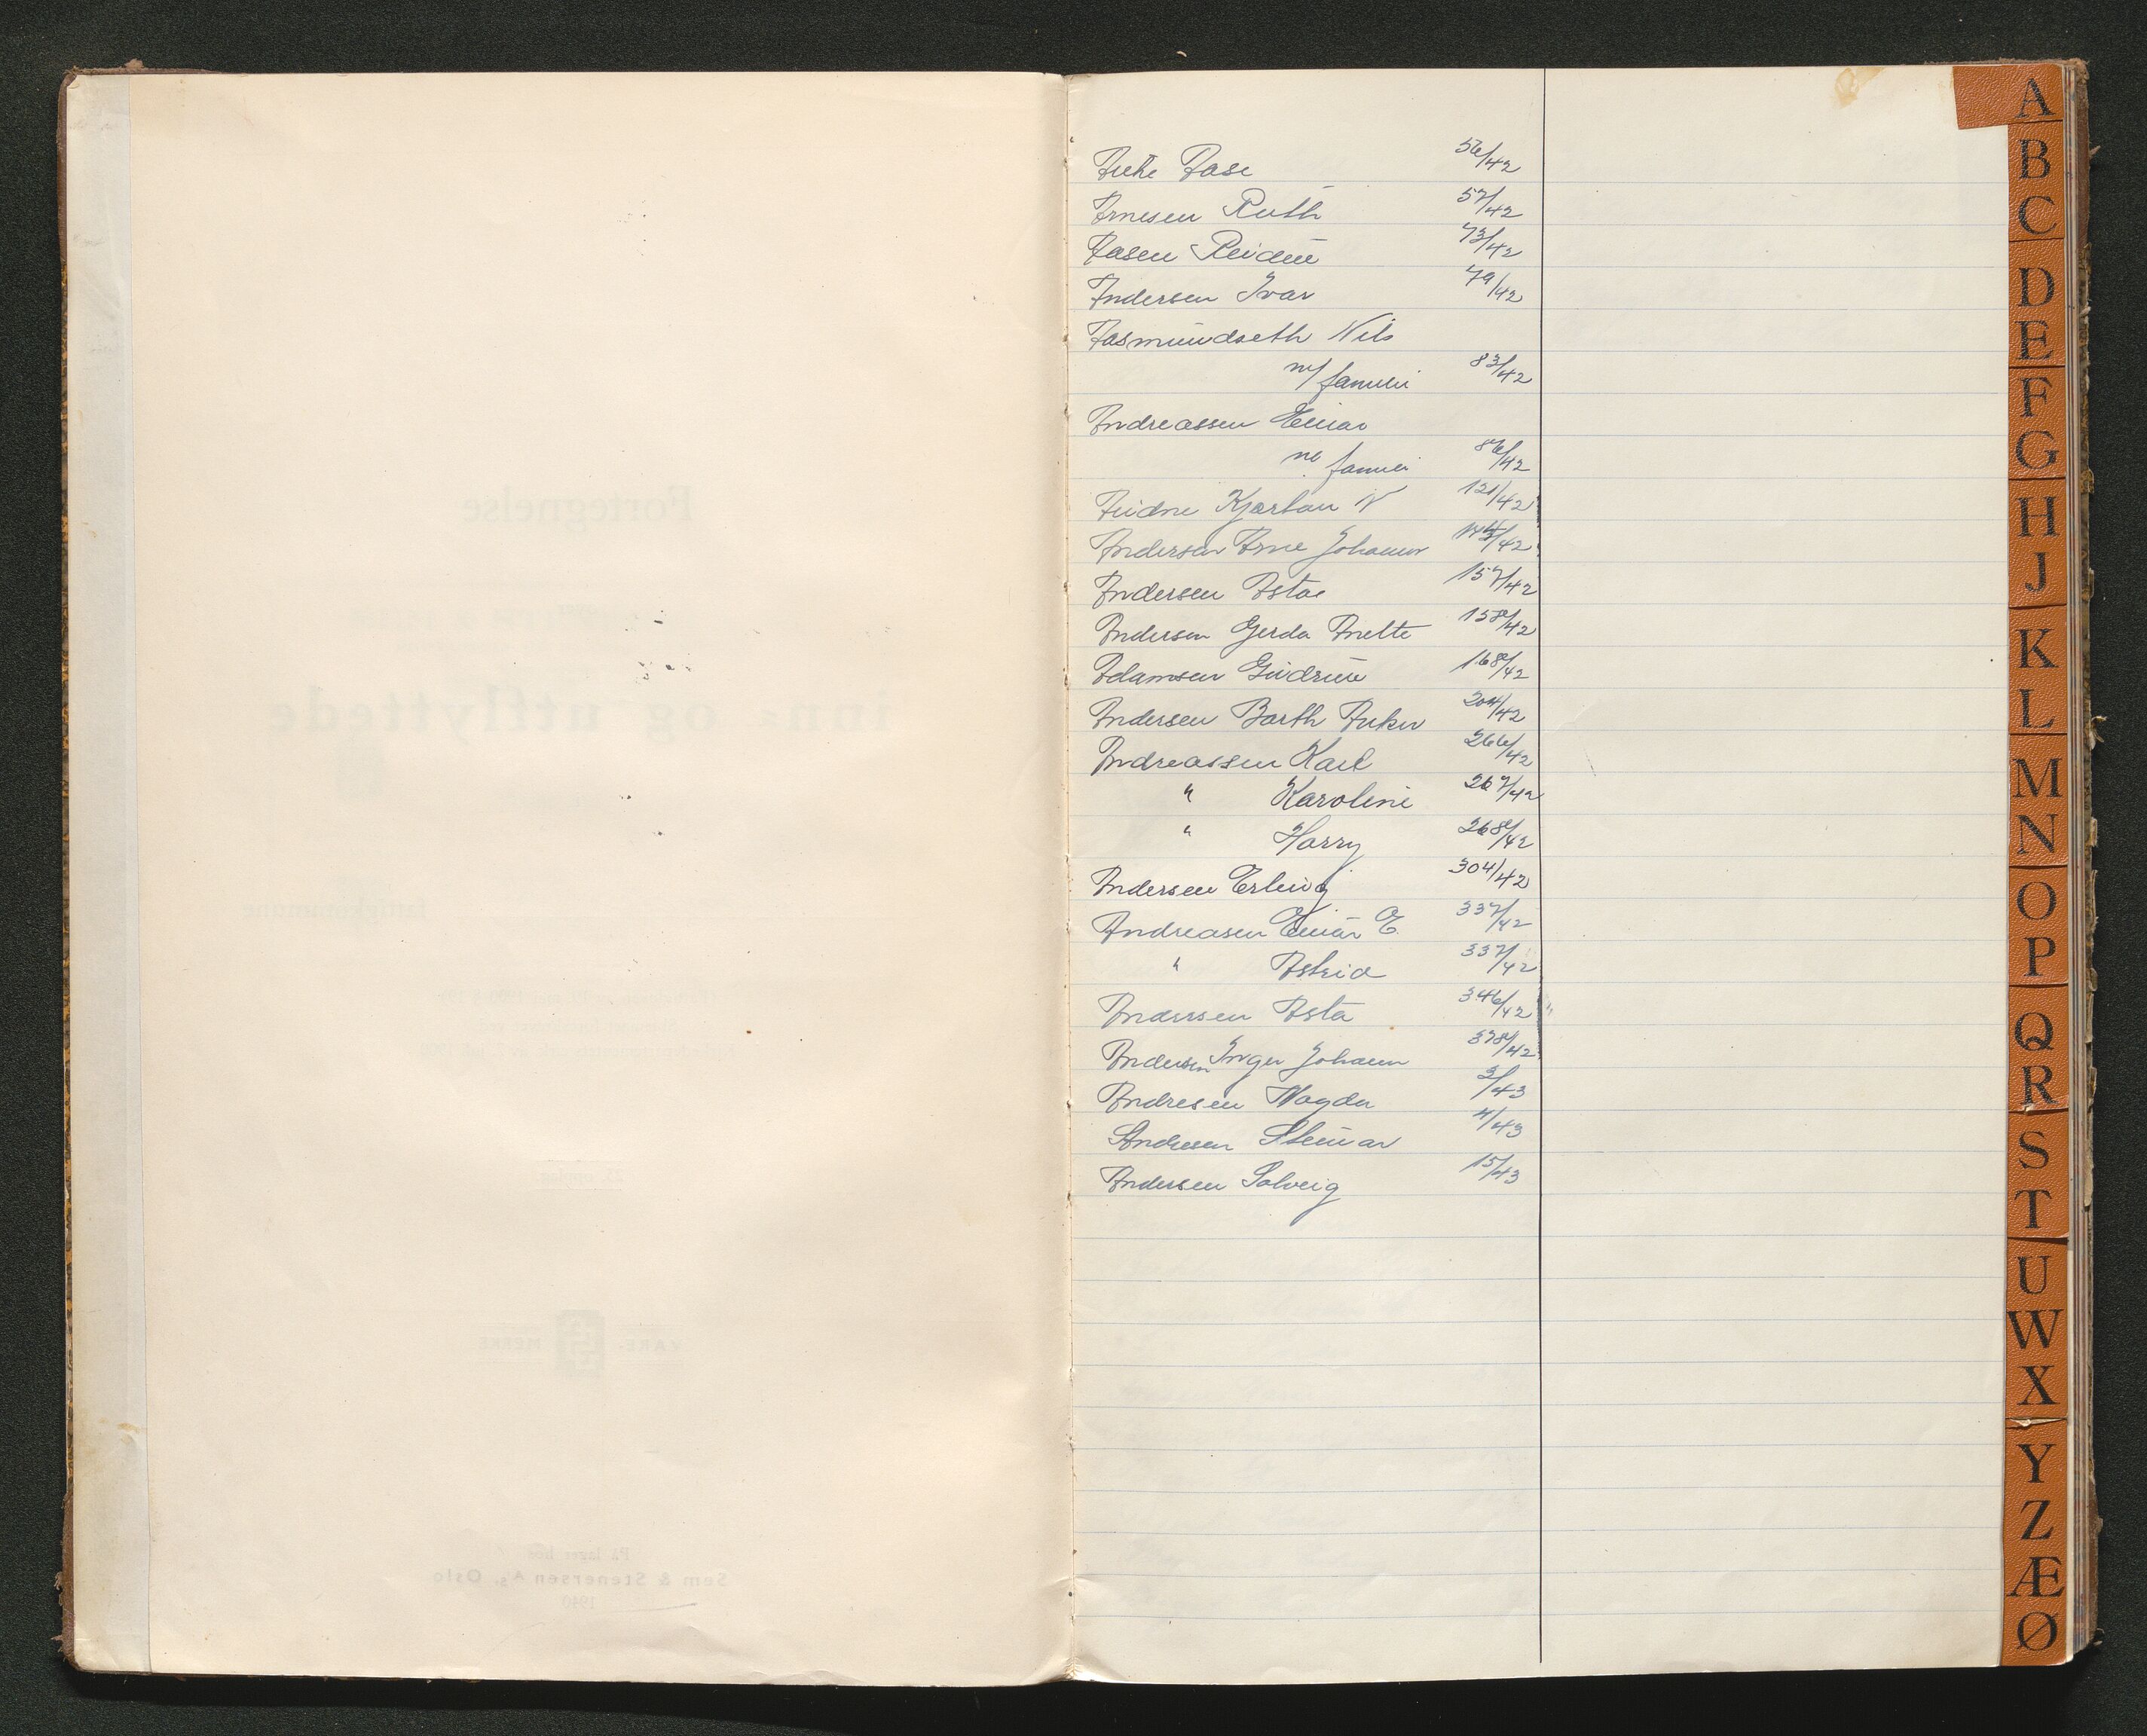 Aase 56/42
Arnesen Ruth 57/42
Aasen Reidun 73/42
Andersen Ivar 79/42
Aasmundseth Nils
m/ familie 83/42
Andreassen Einar
m/ familie 86/42
Kjartan N 121/42
Andersen Arne Johannes /42
Andersen Asta 157/42
Andersen Gerda Anette 158/42
Adamsen Gudrun 168/42
Andersen Barth Anker 204/42
Andreassen Karl 266/42
" Karoline 267/42
" Harry 268/42
Andersen Erling 304/42
Andreasen Einar E. 337/42
" Astrid 337/42
Andersen Asta 346/42
Andersen Inger Johanne 378/42
Andresen Magda 3/43
Andresen Steinar 4/43
Andersen Solveig 15/43
A
B
C
D
E
F
G
H
J
K
L
M
N
O
P
Q
R
S
T
U
W
X
Y
Z
Æ
Ø
Fortegnelse
inn- og utflyttede
Sem & Stenersen A/s, Oslo
1940